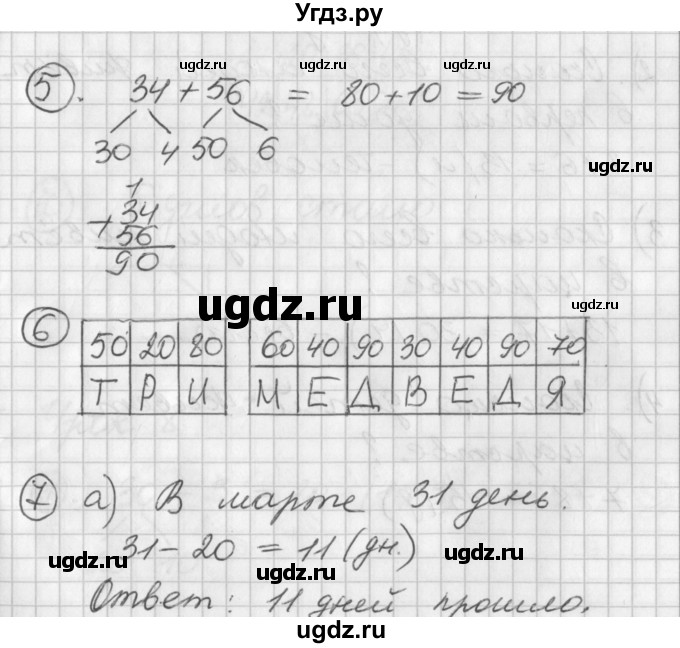 Угдз.ру
5. 34 + 56 = 80 + 10 = 90
30 4 50 6
1
+ 34
56
90
6
50 20 80 60 40 90 30 40 90 70
Т Р И М Е Д В Е Д Я
7 а) В марте 31 день.
31 - 20 = 11 (дн.)
Ответ: 11 дней прошло.
ugdz.ru
ugdz.ru
ugdz.ru
ugdz.ru
ugdz.ru
ugdz.ru
ugdz.ru
ugdz.ru
ugdz.ru
ugdz.ru